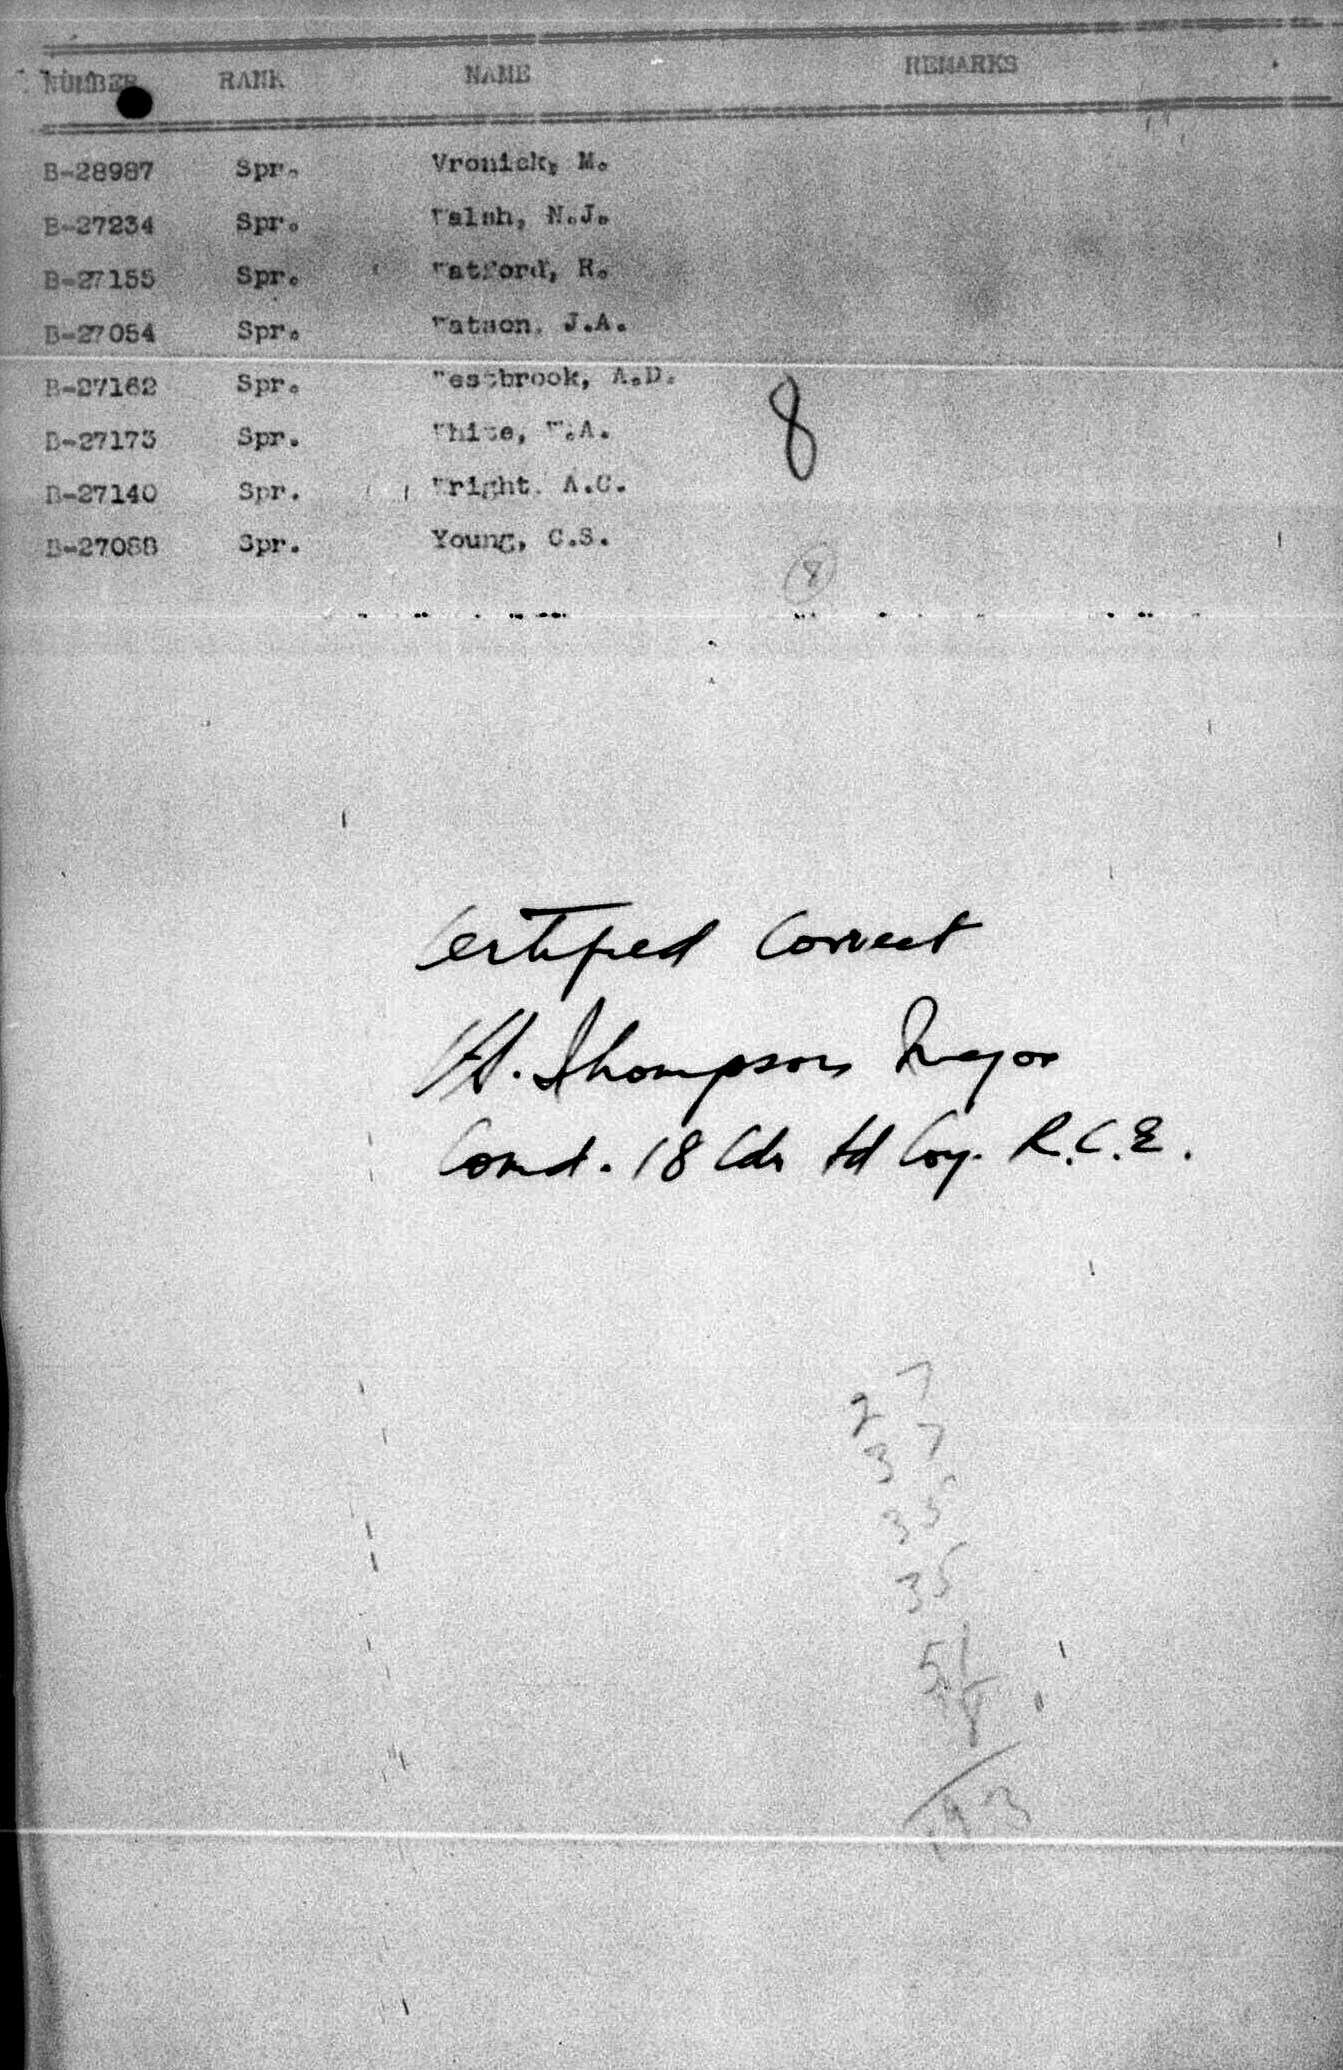 NUMBER RANK NAME REMARKS
B-28987 Spr. Vronick, M.
B-27234 Spr. Walsh, N.J.
B-27155 Spr. Watford, R.
B-27054 Spr. Watson, J.A.
B-27162 Spr. Westbrook, A.D.
B-27173 Spr. White, W.A.
B-27140 Spr. Wright, A.C.
B-27088 Spr. Young, C.S.
8
8
Certified Correct
Thompson Major
Comd. 18 Cdn Fd Coy. R.C.E.
27
37
35
35
51
8
193